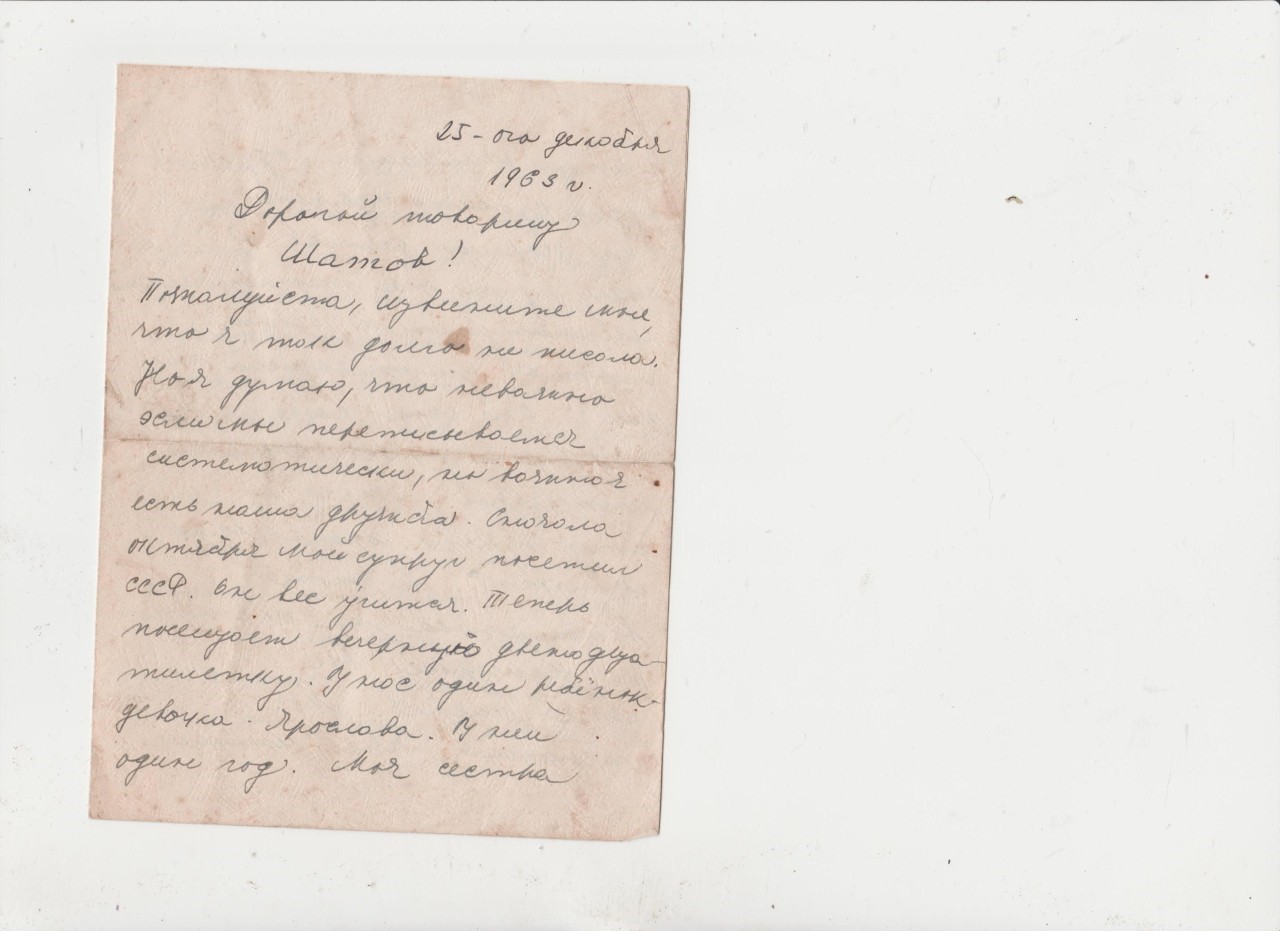 25-ого декабря
1963 г.
Дорогой товарищ
Шатов!
Пожалуйста, извините мне,
что я так долго не писала.
Но я думаю, что неважно
если мы переписываемся
систематически, но важная
есть наша дружба. Сначала
октября мой супруг посетил
СССР. Он вес учится. Теперь
посещает вечернюю двенадца-
тилетку. У нас один ребёнок-
девочка - Ярослава. У неи
один год. Моя сестра